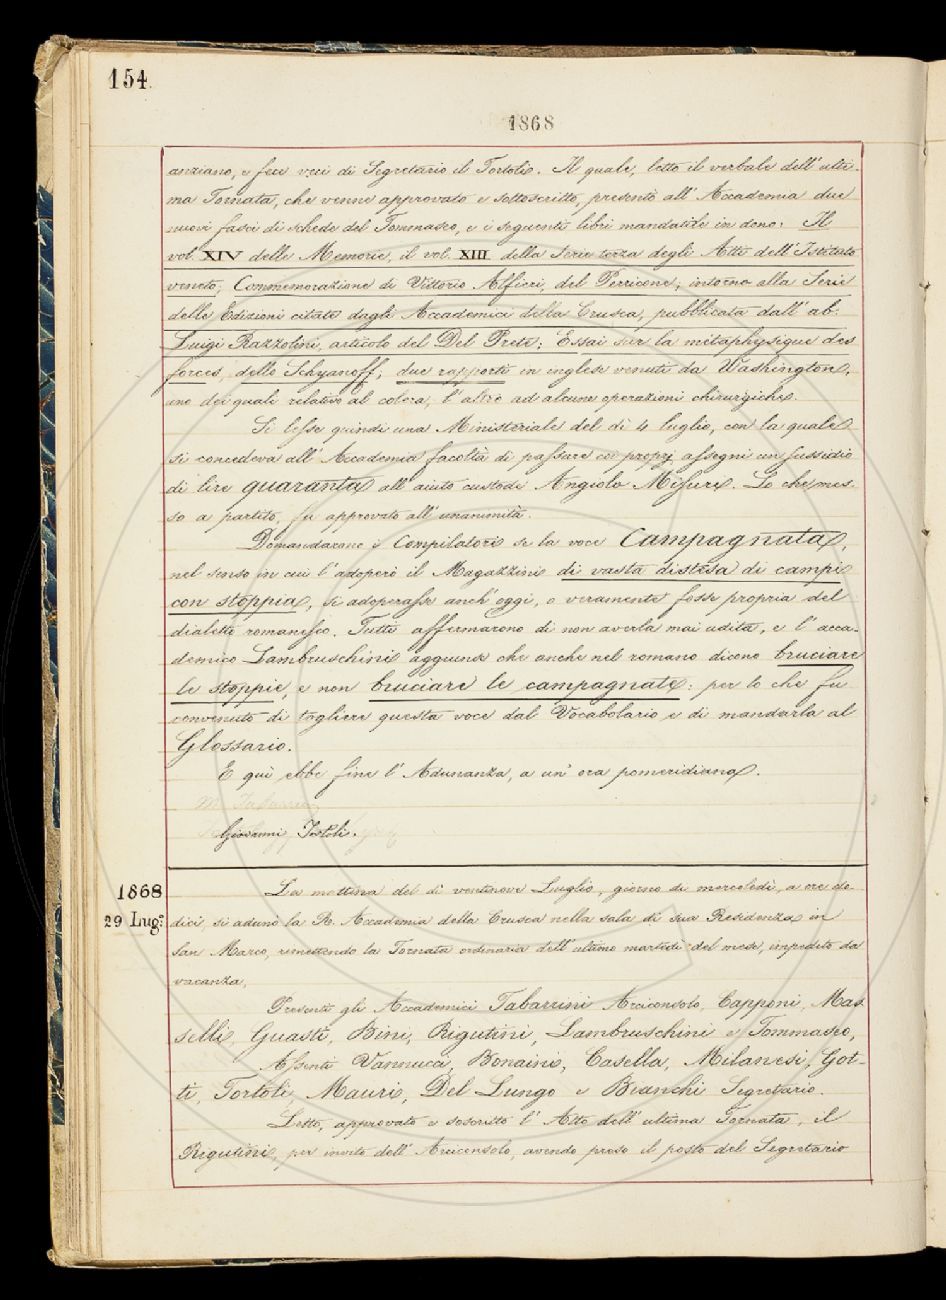 154
1868
anziano, e fece veci di Segretario il Tortoli. Il quale, letto il verbale dell' ulti-
ma Tornata, che venne approvato e sottoscritto, presentò all' Accademia due
nuovi fasci di schede del Tommaseo, e i seguenti libri mandatile in dono: Il
vol. XIV delle Memorie, il vol. XIII della Serie terza degli Atti dell' Istituto
veneto; Commemorazione di Vittorio Alfieri, del Perricone; intorno alla Serie
delle Edizioni citate dagli Accademici della Crusca, pubblicata dall' ab.
Luigi Razzolini, articolo del Del Prete; Essai sur la métaphysique des
forces, dello Schyanoff; due rapporti in inglese venuti da Washington,
uno dei quali relativo al colera, l' altro ad alcune operazioni chirurgiche.
Si lesse quindi una Ministeriale del dì 4 luglio, con la quale
si concedeva all' Accademia facoltà di passare co' proprj assegni un sussidio
di lire quaranta all' aiuto custode Angiolo Misuri. Lo che mes-
so a partito, fu approvato all' unanimità.
Domandarono i Compilatori se la voce Campagnata,
nel senso in cui l' adoperò il Magazzini di vasta distesa di campi
con stoppia, si adoperasse anch' oggi, o veramente fosse propria del
dialetto romanesco. Tutti affermarono di non averla mai udita, e l' acca-
demico Lambruschini aggiunse che anche nel romano dicono bruciare
le stoppie, e non bruciare le campagnate: per lo che fu
convenuto di togliere questa voce dal Vocabolario e di mandarla al
Glossario.
E quì ebbe fine l' Adunanza, a un' ora pomeridiana.
M. Tabarrini
Giovanni Tortoli.
1868
29 Lug.º
La mattina del dì ventinove Luglio, giorno di mercoledì, a ore do-
dici, si adunò la R. Accademia della Crusca nella sala di sua Residenza in
San Marco, rimettendo la Tornata ordinaria dell' ultimo martedì del mese, impedita da
vacanza.
Presenti gli Accademici Tabarrini Arciconsolo, Capponi, Mas-
selli, Guasti, Bini, Rigutini, Lambruschini e Tommaseo,
Assenti Vannucci, Bonaini, Casella, Milanesi, Got-
ti, Tortoli, Mauri, Del Lungo e Bianchi Segretario.
Letto, approvato e soscritto l' Atto dell' ultima Tornata, il
Rigutini, per invito dell' Arciconsolo, avendo preso il posto del Segretario